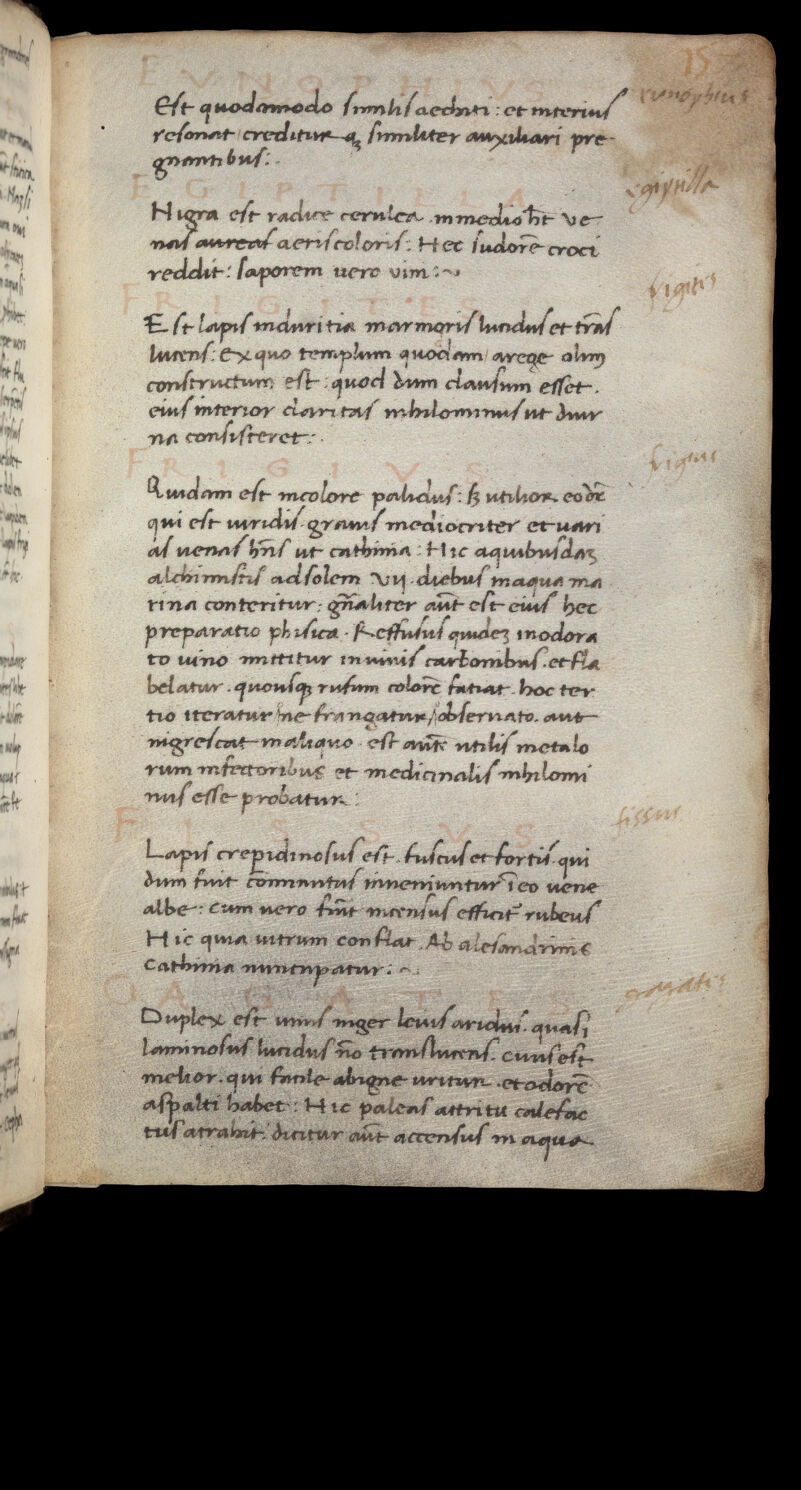 15
EVNOPHIVS
eunophius
Est quodamodo similis aechiti : et interius
resonat / creditur q3 similiter auxiliari pre-
gnantibus : .
EGIPTILLA
egiptilla
Nigra est radice cerulea . in medio h̄t ve-
nas aureas aeris coloris : Hec sudorē croci
reddit : saporem uero vim : ~
FRIGITES
frigitis
Est lapis in duritia marmoris lucidus et trās
lucens : Ex quo templum quodam / arege olim
constructum est : quod dum clausum esset .
eius interior claritas nihilominus ut diur
na consisteret : .
FRIGIVS
frigius
Quidam est incolore palidus : s3 utilior eodē
qui est uiridis . grauis mediocriter et uari
as uenas hn̄s ut cathimia : Hic aquibusda3
alchimistis ad solem VII . diebus inaqua ma
rina conteritur : gn̄aliter aūt est eius hec
preparatio phisica . Reffusus quide3 inodora
to uino mittitur in uiuis carbonibus . et fla
belatur . quousq3 rufum colorē fatiat . hoc ter
tio iteratur / ne frangatur / obseruato . aut
nigrescat in aliquo . est autē utilis metalo
rum infectoribus et medicinalis nihilomi
nus esse probatur :
FISSVS
fissus
Lapis crepidinosus est . fuscus et fortis . qui
dum fuit cōminutus inueniuntur ī eo uene
albe : cum uero fūit incensus efficit̄ rubeus
Hic quia uitrum conflat . Ab alesandrinis
cathimia nuncupatur : ~ .
GAGATES
gagatis
Duplex est unus niger leuis aridus . quasi
laminosus lucidus nō translucens . cuius est
melior . qui facile abigne uritur . et odorē
aspalti habet : Hic paleas attritu calefac
tus atrahit : dicitur aūt accensus in aqua